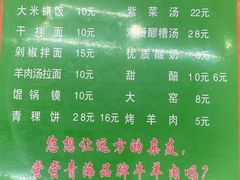 大米搅饭 10元 紫菜汤 22元
干拌面 10元 鸡蛋醪糟汤 28元
剁椒拌面 15元 优质酸奶 6元
羊肉汤拉面 10元 甜醅 10元 6元
馄锅馍 10元 大窑 8元
青稞饼 2.8元 16元 烤羊肉 5元
您想让远方的亲友,
尝尝青海品牌牛羊肉吗?